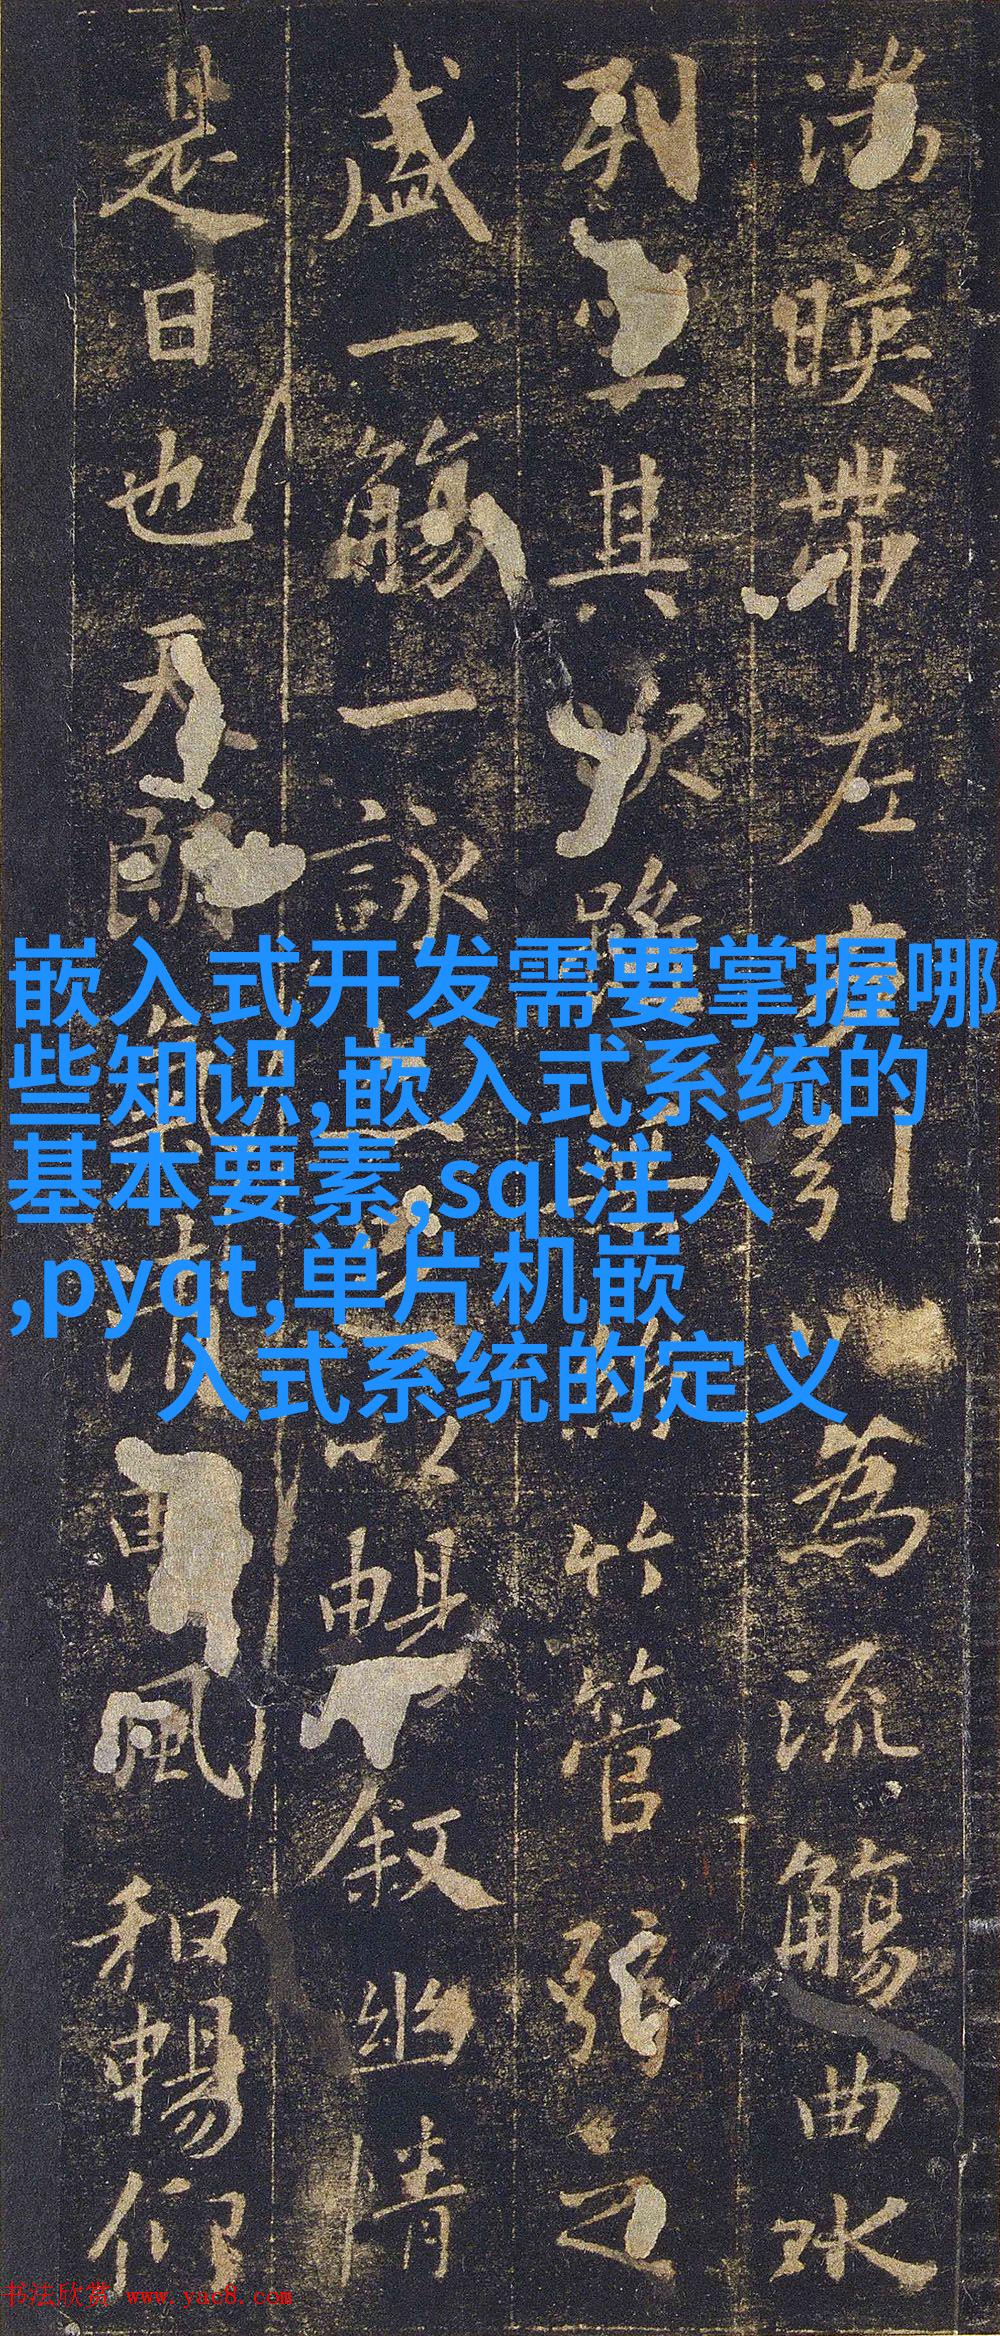 湍暎帶左右引以為流觴曲水
列坐其次雖無絲竹管弦之
盛一觴一詠亦足以暢叙幽情
是日也天朗氣清惠風和暢仰
嵌入式开发需要掌握哪
些知识,嵌入式系统的
基本要素,sql注入
,pyqt,单片机嵌
入式系统的定义
书法欣赏 www.yac8.com